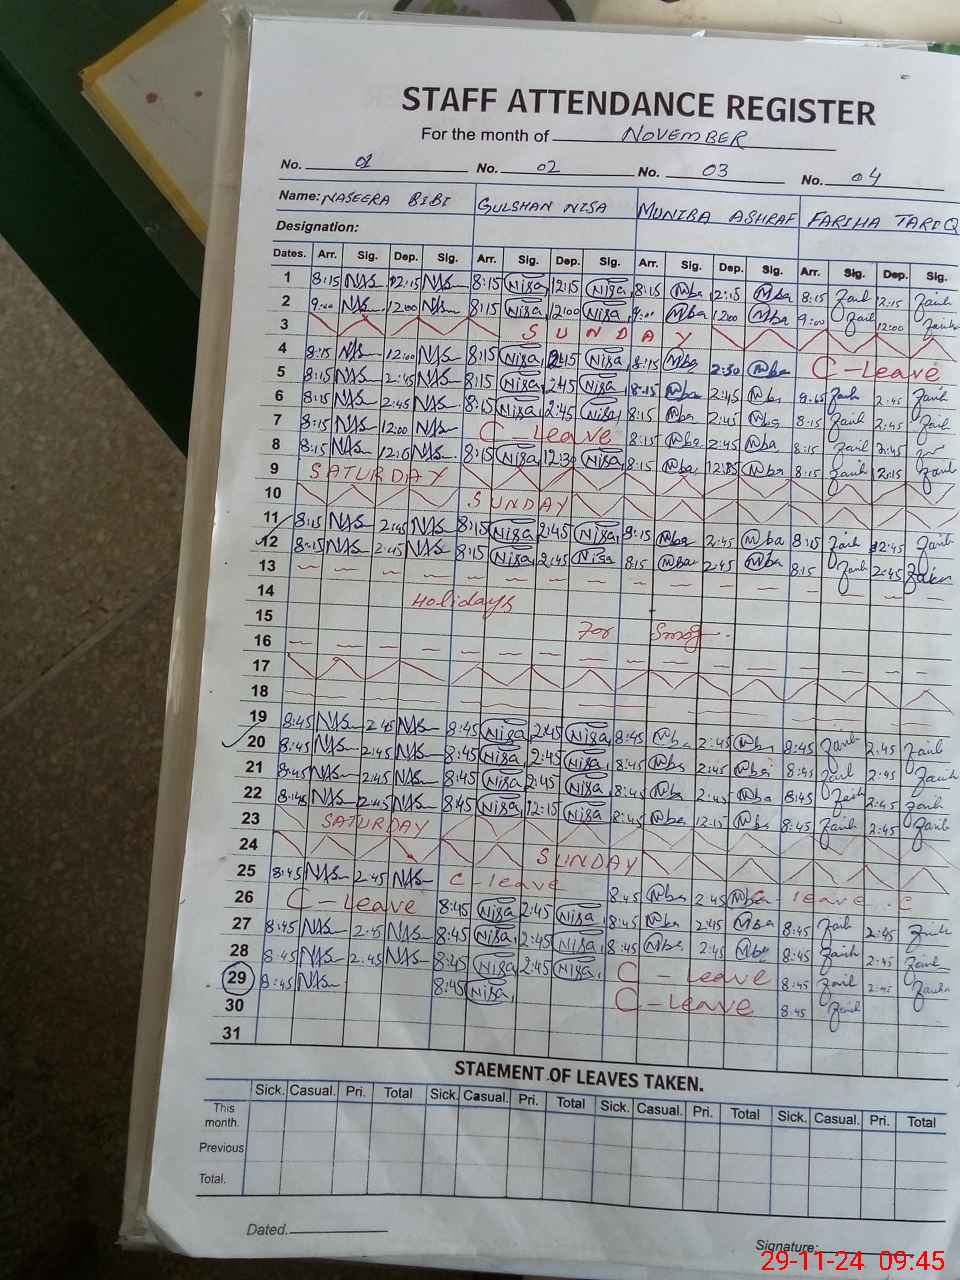 STAFF ATTENDANCE REGISTER
For the month of NOVEMBER
No. 01 No. 02 No. 03 No. 04
Name: NASEERA BIBI GULSHAN NISA MUNIBA ASHRAF FARIHA TARIQ
Designation:
Dates. Arr. Sig. Dep. Sig. Arr. Sig. Dep. Sig. Arr. Sig. Dep. Sig. Arr. Sig. Dep. Sig.
1 8:15 NAS 12:15 NAS 8:15 Nisa 12:15 Nisa 8:15 Mba 12:15 Mba 8:15 12:15
2 9:00 NAS 12:00 NAS 8:15 Nisa 12:00 Nisa 9:00 Mba 12:00 Mba 9:00 12:00
3 SUNDAY
4 8:15 NAS 12:00 NAS 8:15 Nisa 2:45 Nisa 8:15 Mba 2:30 Mba C-Leave
5 8:15 NAS 2:45 NAS 8:15 Nisa 2:45 Nisa 8:15 Mba 2:45 Mba 2:45
6 8:15 NAS 2:45 NAS 8:15 Nisa 2:45 Nisa 8:15 Mba 2:45 Mba 8:15 2:45
7 8:15 NAS 12:00 NAS C-Leave 8:15 Mba 2:45 Mba 8:15 2:45
8 8:15 NAS NAS 8:15 Nisa 12:30 Nisa 8:15 Mba Mba 8:15 12:15
9 SATURDAY
10 SUNDAY
11 8:15 NAS 2:45 NAS 8:15 Nisa 2:45 Nisa 8:15 Mba 2:45 Mba 8:15 2:45
12 8:15 NAS 2:45 NAS 8:15 Nisa 2:45 Nisa 8:15 Mba 2:45 Mba 8:15 2:45
13
14 Holidays
15
16 For Smog
17
18
19 8:45 NAS 2:45 NAS 8:45 Nisa 2:45 Nisa 8:45 Mba 2:45 Mba 8:45 2:45
20 8:45 NAS 2:45 NAS 8:45 Nisa 2:45 Nisa 8:45 Mba 2:45 Mba 8:45 2:45
21 8:45 NAS 2:45 NAS 8:45 Nisa 2:45 Nisa 8:45 Mba 2:45 Mba 8:45 2:45
22 8:45 NAS 2:45 NAS 8:45 Nisa 12:15 Nisa 8:45 Mba 12:15 Mba 8:45 2:45
23 SATURDAY
24 SUNDAY
25 8:45 NAS 2:45 NAS C-leave 8:45 Mba 2:45 Mba C-leave
26 C-Leave 8:45 Nisa 2:45 Nisa 8:45 Mba 2:45 Mba 8:45 2:45
27 8:45 NAS 2:45 NAS 8:45 Nisa 2:45 Nisa 8:45 Mba 2:45 Mba 8:45 2:45
28 8:45 NAS 2:45 NAS 8:45 Nisa 2:45 Nisa C-Leave 8:45 2:45
29 8:45 NAS 8:45 Nisa C-Leave 8:45
30
31
STAEMENT OF LEAVES TAKEN.
Sick. Casual. Pri. Total Sick. Casual. Pri. Total Sick. Casual. Pri. Total Sick. Casual. Pri. Total
This month.
Previous
Total.
Dated.
Signature:
29-11-24 09:45